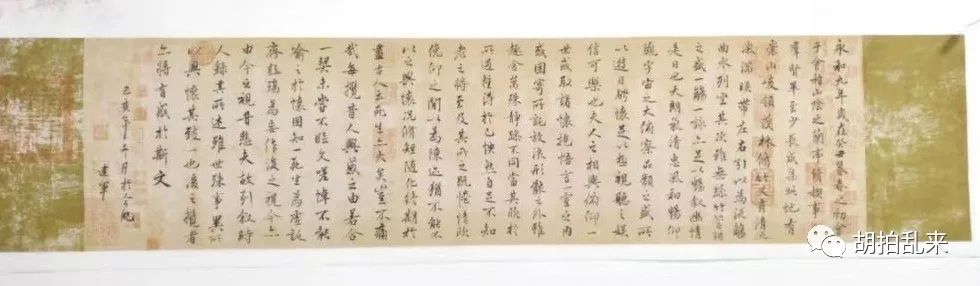 永和九年歲在癸丑暮春之初會
于會稽山陰之蘭亭脩稧事也
羣賢畢至少長咸集此地有
崇山峻領茂林脩竹又有清流
激湍暎帶左右引以為流觴
曲水列坐其次雖無絲竹管弦
之盛一觴一詠亦足以暢叙幽情
是日也天朗氣清惠風和暢仰
觀宇宙之大俯察品類之盛所
以遊目騁懷足以極視聽之娛
信可樂也夫人之相與俯仰一
世或取諸懷抱悟言一室之內
或因寄所託放浪形骸之外雖
趣舍萬殊靜躁不同當其欣於
所遇蹔得於己怏然自足不知
老之將至及其所之既惓情隨
俛仰之間以為陳迹猶不能不
以之興懷況脩短隨化終期於
盡古人云死生亦大矣豈不痛
哉每攬昔人興感之由若合
一契未嘗不臨文嗟悼不能
喻之於懷固知一死生為虛誕
齊彭殤為妄作後之視今亦
由今之視昔悲夫故列叙時
人錄其所述雖世殊事異所
以興懷其致一也後之攬者
亦將有感於斯文
己亥年 月於
建軍
胡拍乱来